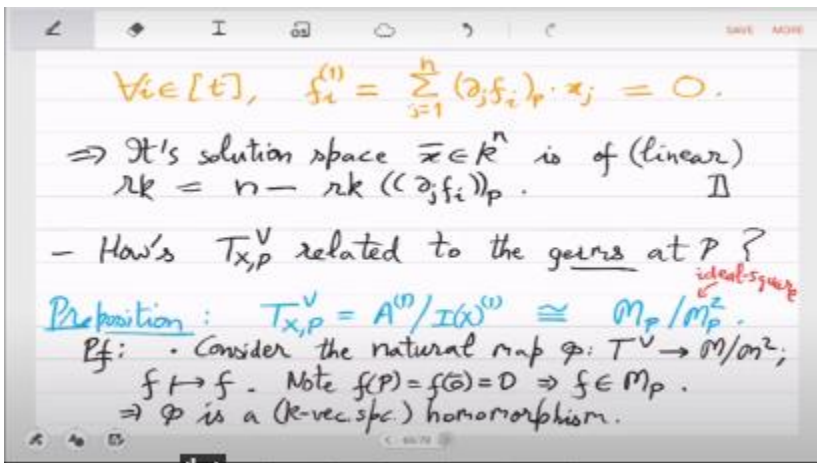 SAVE MORE
∀i∈[t], f_i^{(1)} = Σ_{j=1}^{n} (∂_j f_i)_p · x_j = 0.
⇒ It's solution space x̄ ∈ k^n is of (linear)
rk = n − rk ((∂_j f_i))_p .
− How's T_{X,P}^∨ related to the germs at P ?
ideal-square
Proposition : T_{X,P}^∨ = A^{(1)}/I(X)^{(1)} ≅ m_P/m_P^2 .
Pf: · Consider the natural map φ: T^∨ → m/m^2;
f ↦ f . Note f(P)=f(0̄)=0 ⇒ f ∈ m_P .
⇒ φ is a (k-vec.spc.) homomorphism.